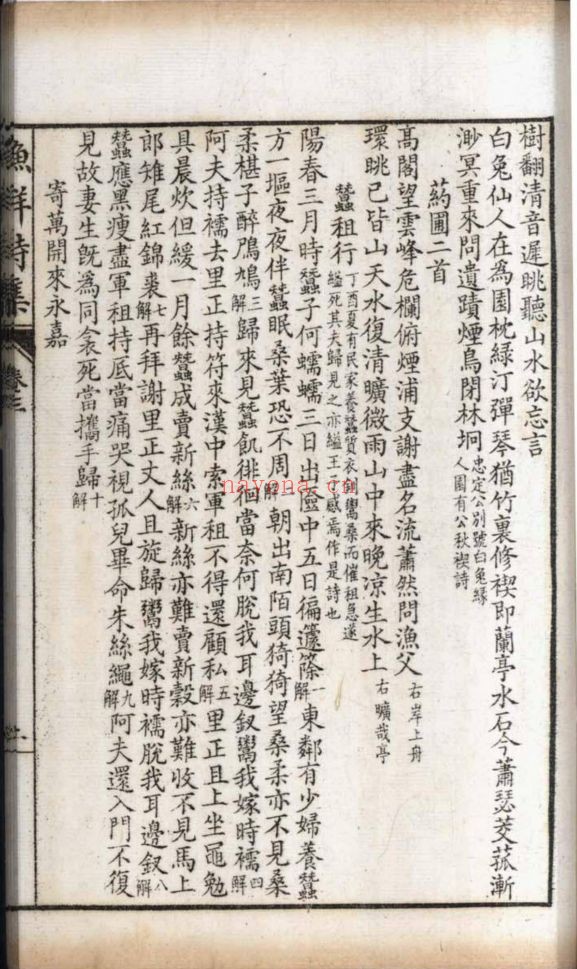 樹翻清音遲眺聽山水欲忘言
白兔仙人在為園枕綠汀彈琴猶竹裏修禊即蘭亭水石今蕭瑟茭菰漸
渺冥重來問遺蹟煙鳥閉林坰忠定公別號白兔緣
人園有公秋禊詩
葯圃二首
高閣望雲峰危欄俯煙浦支謝盡名流蕭然問漁父右岸上舟
環眺已皆山天水復清曠微雨山中來晚涼生水上右曠哉亭
蠶租行丁酉夏有民家養蠶質衣鬻桑而催租急遂
縊死其夫歸見之亦縊王子感焉作是詩也
陽春三月時蠶子何蠕蠕三日出區中五日徧籧篨一解東鄰有少婦養蠶
方一塸夜夜伴蠶眠桑葉恐不周二解朝出南陌頭猗猗望桑柔亦不見桑
柔椹子醉鳲鳩三解歸來見蠶飢徘徊當奈何脫我耳邊釵鬻我嫁時襦四解
阿夫持襦去里正持符來漢中索軍租不得還顧私五解里正且上坐黽勉
具晨炊但緩一月餘蠶成賣新絲六解新絲亦難賣新穀亦難收不見馬上
郎雉尾紅錦裘七解再拜謝里正丈人且旋歸鬻我嫁時襦脫我耳邊釵八解
蠶應黑瘦盡軍租持底當痛哭視孤兒畢命朱絲繩九解阿夫還入門不復
見故妻生旣爲同衾死當攜手歸十解
寄萬開來永嘉
漁洋詩集
卷三
nayona.cn